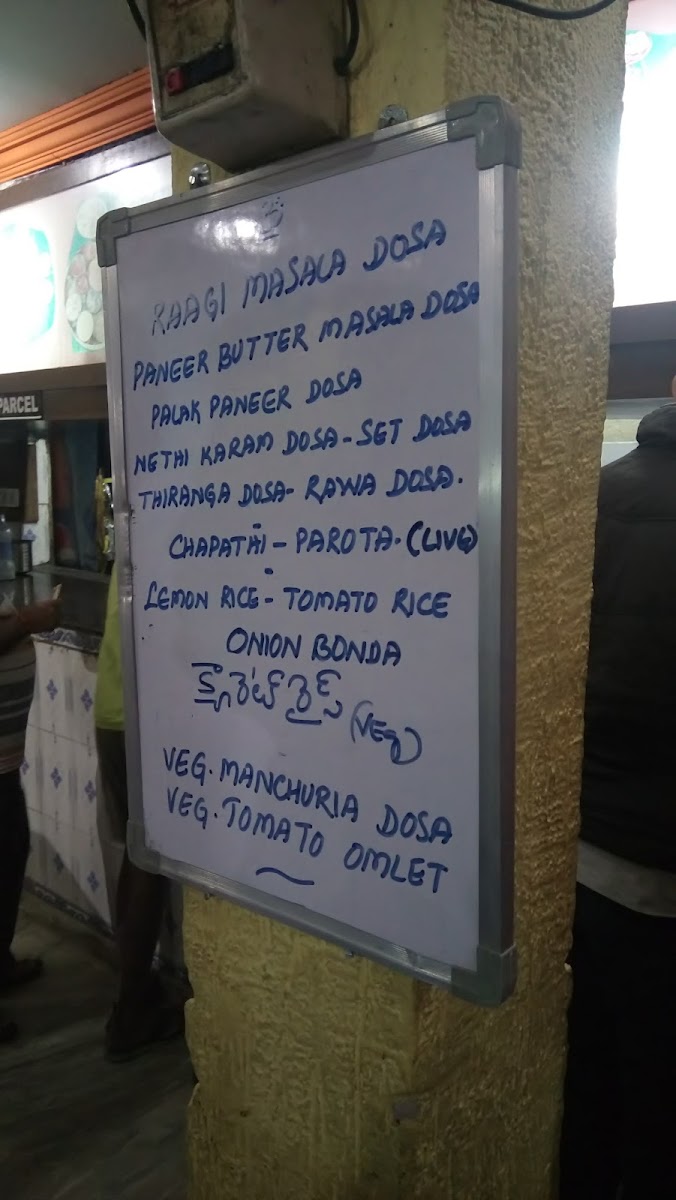 PARCEL
RAAGI MASALA DOSA
PANEER BUTTER MASALA DOSA
PALAK PANEER DOSA
NETHI KARAM DOSA - SET DOSA
THIRANGA DOSA - RAWA DOSA.
CHAPATHI - PAROTA. (LIVE)
LEMON RICE - TOMATO RICE
ONION BONDA
(VEG)
VEG. MANCHURIA DOSA
VEG. TOMATO OMLET